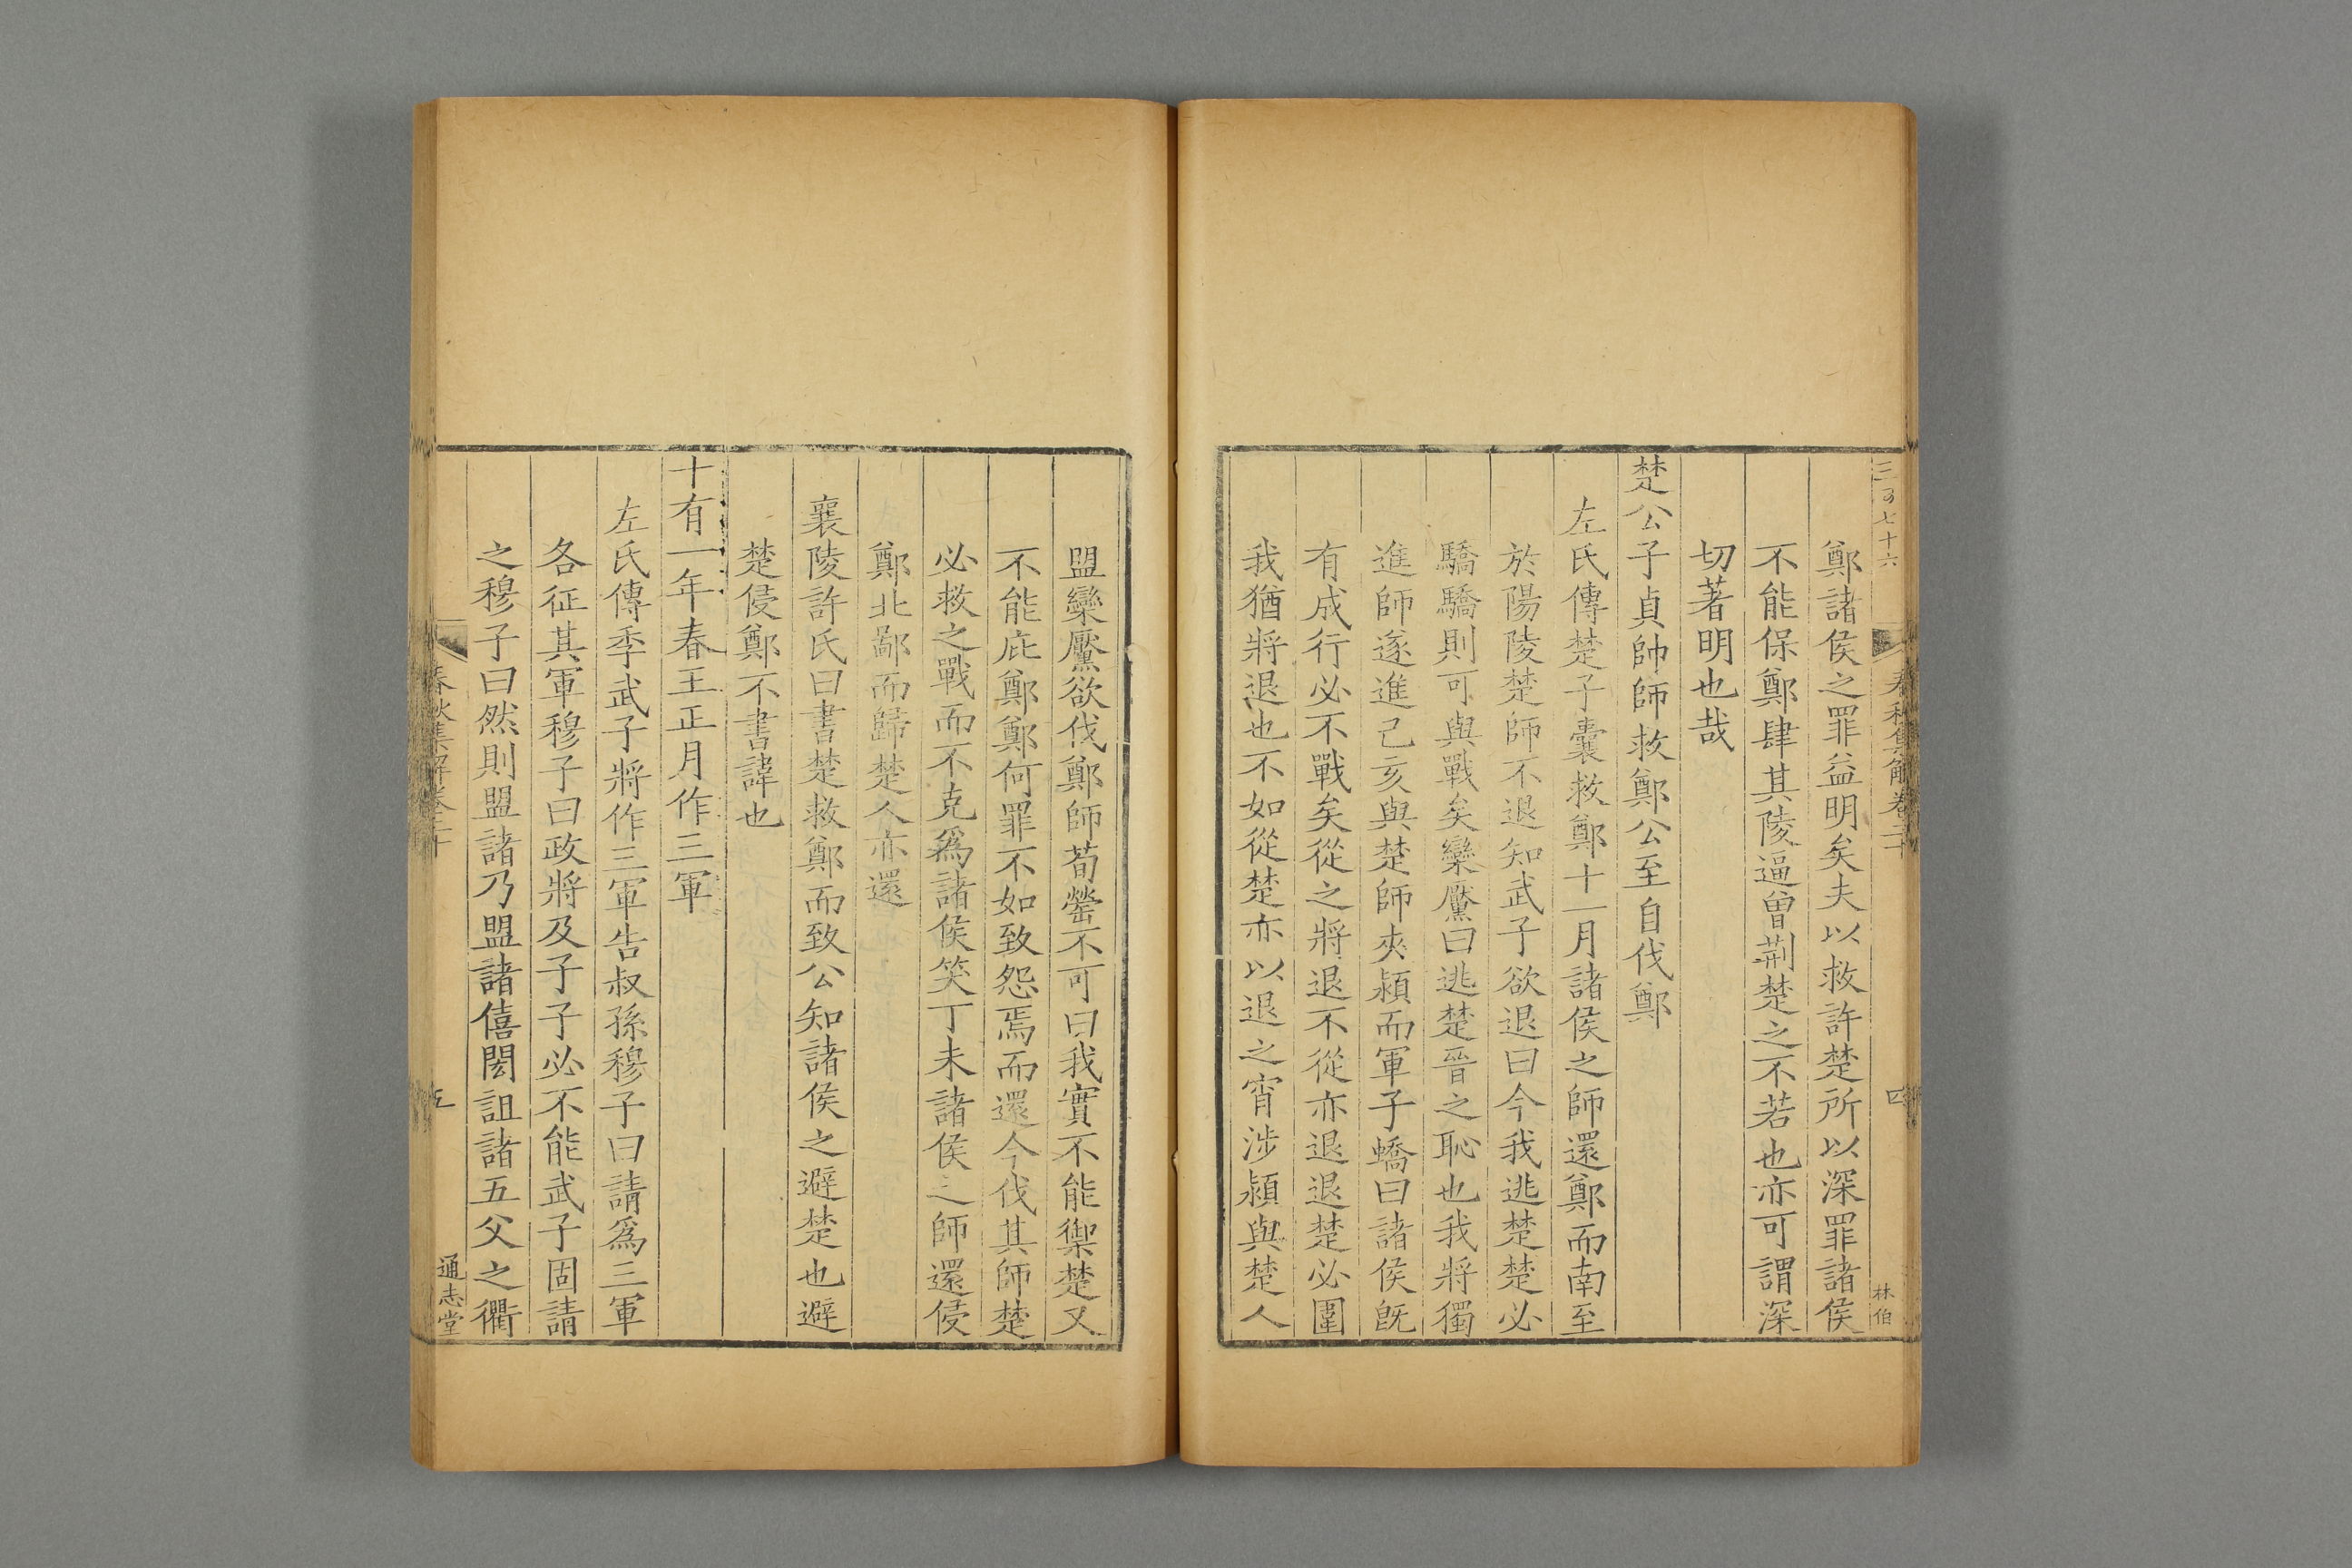 三百七十六
春秋集解卷二十
四
林伯
鄭諸侯之罪益明矣夫以救許楚所以深罪諸侯
不能保鄭肆其陵逼曾荆楚之不若也亦可謂深
切著明也哉
楚公子貞帥師救鄭公至自伐鄭
左氏傳楚子囊救鄭十一月諸侯之師還鄭而南至
於陽陵楚師不退知武子欲退曰今我逃楚楚必
驕驕則可與戰矣欒黶曰逃楚晉之恥也我將獨
進師遂進己亥與楚師夾潁而軍子蟜曰諸侯旣
有成行必不戰矣從之將退不從亦退退楚必圍
我猶將退也不如從楚亦以退之宵涉潁與楚人
盟欒黶欲伐鄭師荀罃不可曰我實不能禦楚又
不能庇鄭鄭何罪不如致怨焉而還今伐其師楚
必救之戰而不克爲諸侯笑丁未諸侯之師還侵
鄭北鄙而歸楚人亦還
襄陵許氏曰書楚救鄭而致公知諸侯之避楚也避
楚侵鄭不書諱也
十有一年春王正月作三軍
左氏傳季武子將作三軍告叔孫穆子曰請爲三軍
各征其軍穆子曰政將及子子必不能武子固請
之穆子曰然則盟諸乃盟諸僖閎詛諸五父之衢
春秋集解卷二十
五
通志堂